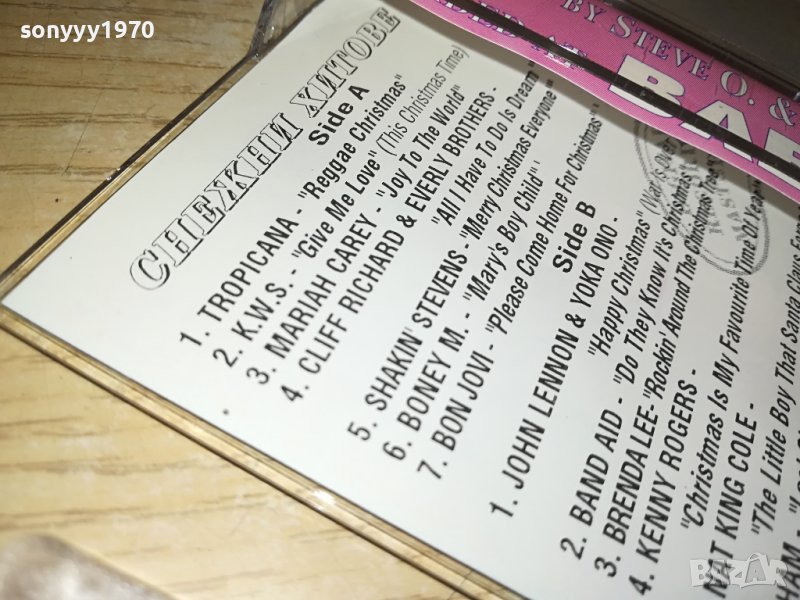 sonyyy1970
BY STEVE O. &
BAR
СНЕЖНИ ХИТОВЕ
Side A
1. TROPICANA - "Reggae Christmas"
2. K.W.S. - "Give Me Love" (This Christmas Time)
3. MARIAH CAREY - "Joy To The World"
4. CLIFF RICHARD & EVERLY BROTHERS -
"All I Have To Do Is Dream"
5. SHAKIN' STEVENS - "Merry Christmas Everyone"
6. BONEY M. - "Mary's Boy Child"
7. BON JOVI - "Please Come Home For Christmas"
Side B
1. JOHN LENNON & YOKA ONO -
"Happy Christmas" (War Is Over)
2. BAND AID - "Do They Know It's Christmas"
3. BRENDA LEE- "Rockin' Around The Christmas Tree"
4. KENNY ROGERS -
"Christmas Is My Favourite Time Of Year"
NAT KING COLE -
"The Little Boy That Santa Claus
HAM -
BAZAR